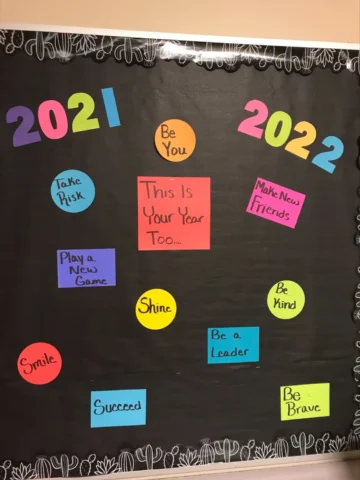 2021
2022
Be
You
Take
Risk
This Is
Your Year
Too...
Make New
Friends
Play a
New
Game
Shine
Be
Kind
Be a
Leader
Smile
Succeed
Be
Brave